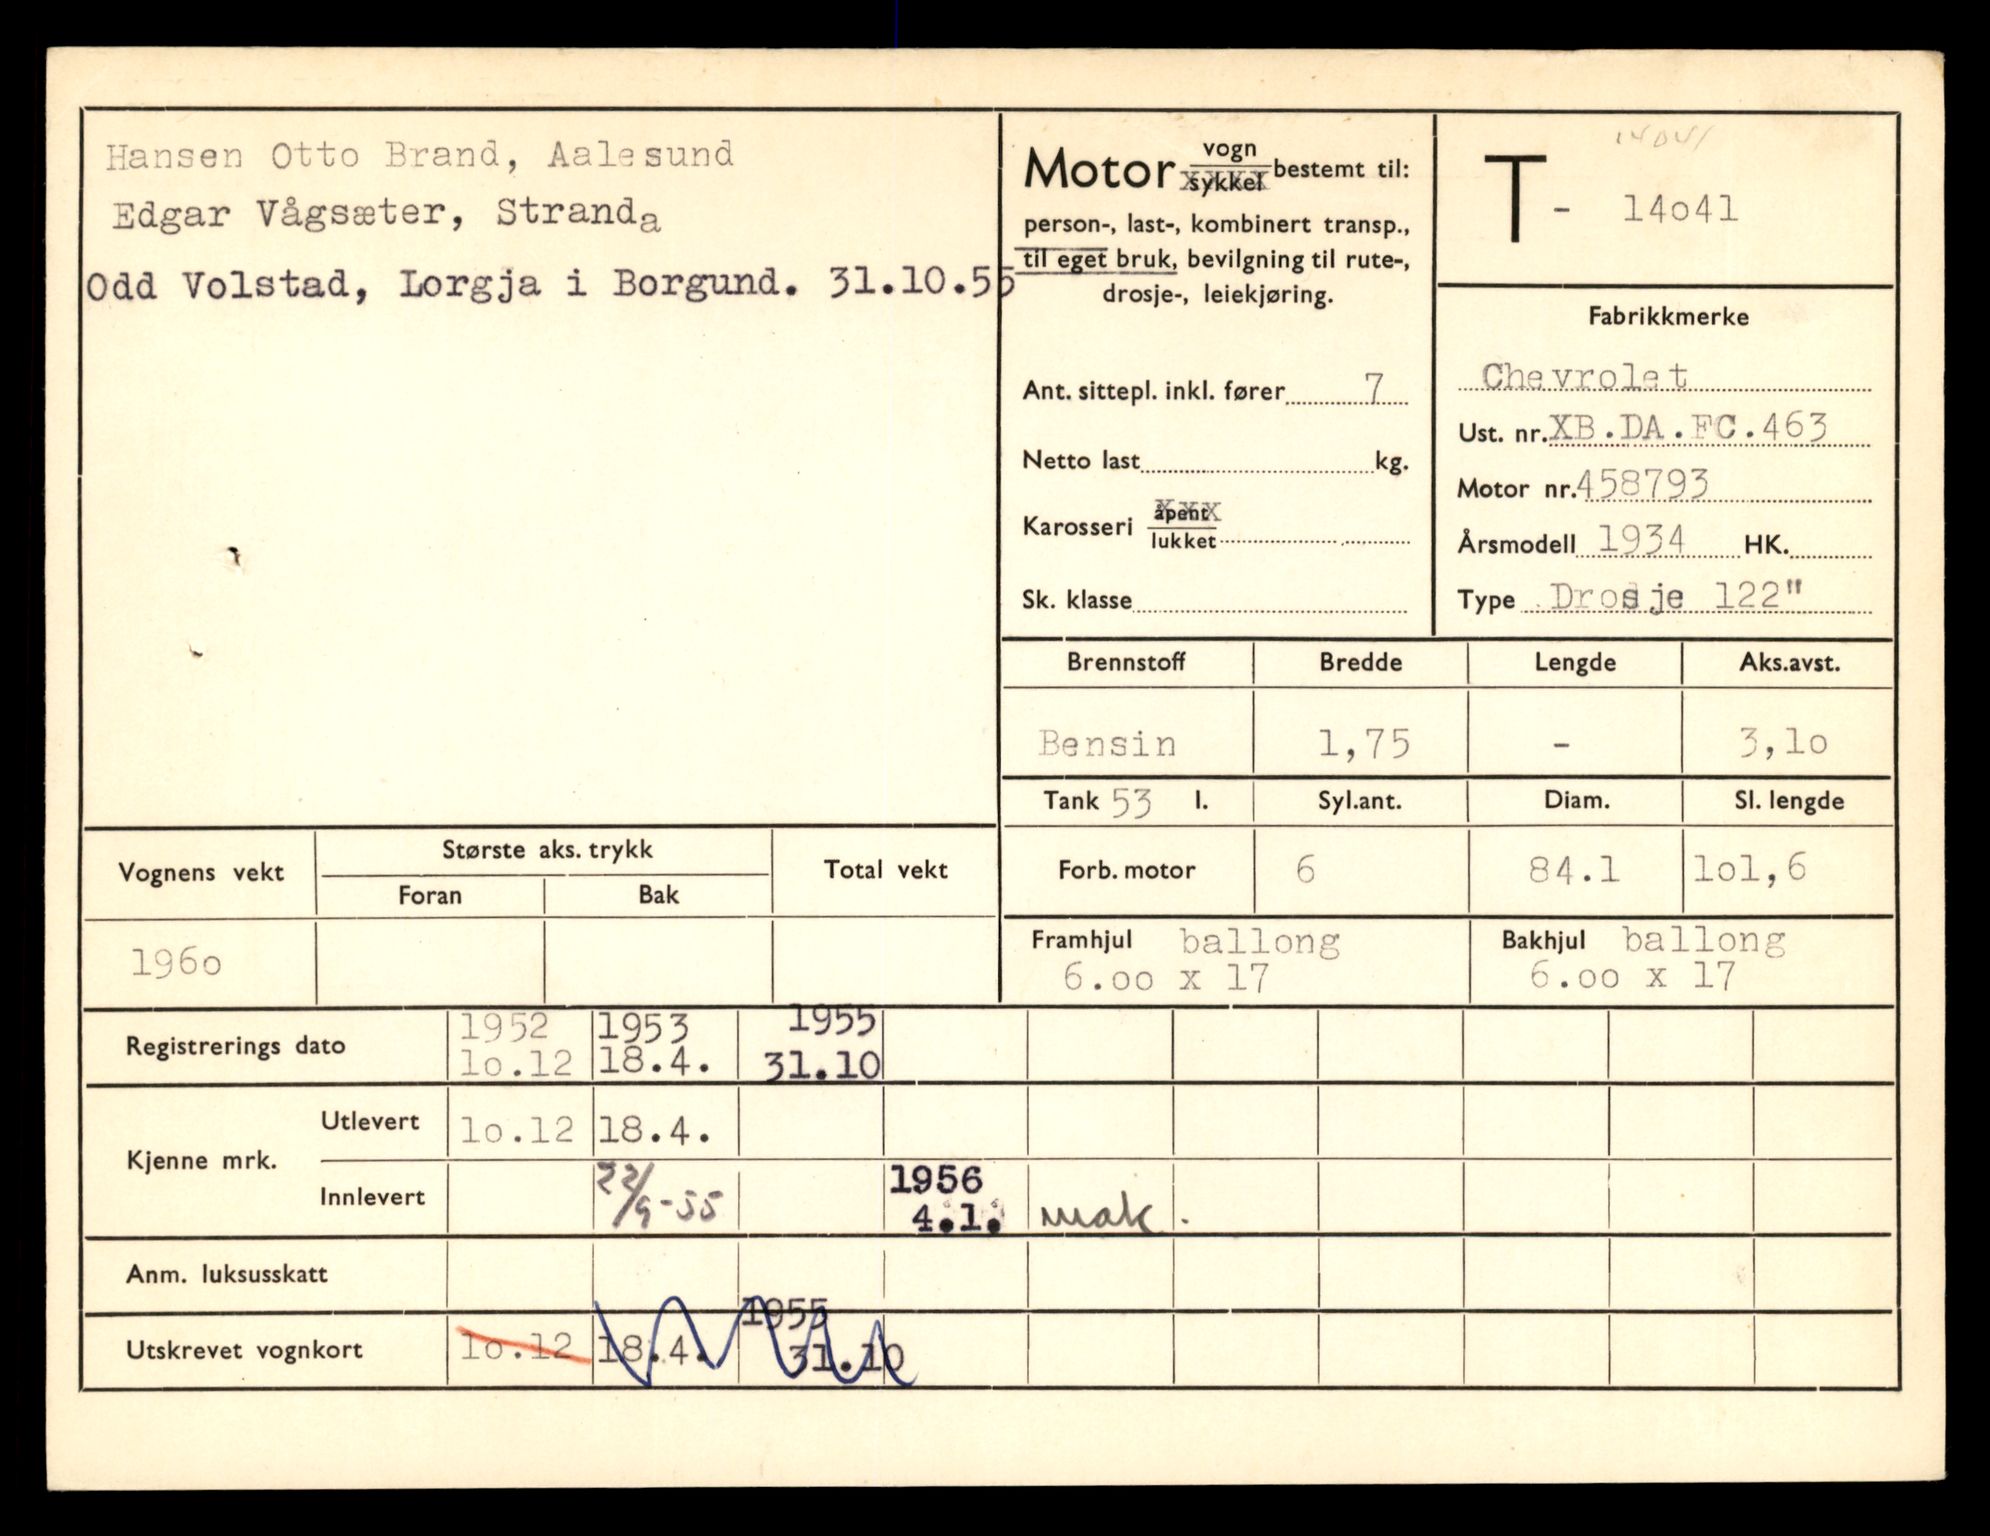 Hansen Otto Brand, Aalesund
Edgar Vågsæter, Stranda
Odd Volstad, Lorgja i Borgund. 31.10.55
Motor vogn bestemt til:
sykkel
person-, last-, kombinert transp.,
til eget bruk, bevilgning til rute-,
drosje-, leiekjøring.
Ant. sittepl. inkl. fører 7
Netto last kg.
Karosseri åpent
lukket
Sk. klasse
14041
T - 14o41
Fabrikkmerke
Chevrolet
Ust. nr. XB.DA.FC.463
Motor nr. 458793
Årsmodell 1934 HK.
Type Drosje 122"
Brennstoff Bredde Lengde Aks.avst.
Bensin 1,75 - 3,1o
Tank 53 l. Syl.ant. Diam. Sl. lengde
Forb. motor 6 84.1 1o1,6
Framhjul ballong Bakhjul ballong
6.oo x 17 6.oo x 17
Vognens vekt Største aks. trykk Total vekt
Foran Bak
196o
Registrerings dato 1952 1953 1955
1o.12 18.4. 31.10
Kjenne mrk. Utlevert 1o.12 18.4.
Innlevert 22/9-55 1956
4.1. mak.
Anm. luksusskatt
1955
Utskrevet vognkort 1o.12 18.4. 31.10